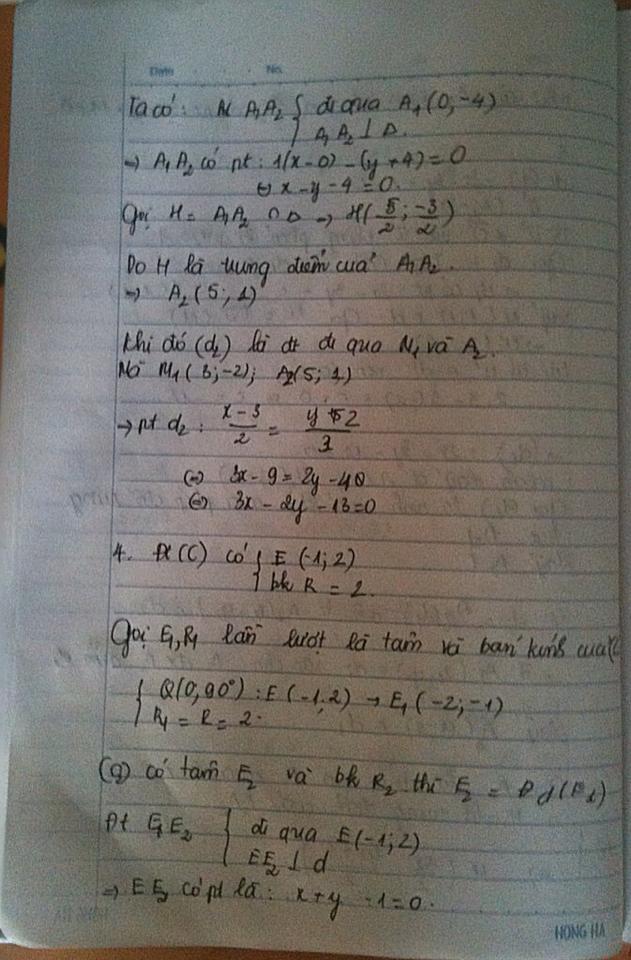 Date No.
Ta có: đt A₁A₂ { đi qua A₁(0,-4)
A₁A₂ ⊥ Δ.
→ A₁A₂ có pt: 1(x-0) - (y+4) = 0
⇔ x-y-4=0.
Gọi H = A₁A₂ ∩ Δ → H(5/2; -3/2)
Do H là trung điểm của A₁A₂.
→ A₂(5; 1)
Khi đó (d₂) là đt đi qua M₁ và A₂.
Mà M₁(3;-2); A₂(5; 1)
→ pt d₂: (x-3)/2 = (y+2)/3
⇔ 3x-9 = 2y-40
⇔ 3x-2y-13=0
4. Đt (C) có { E(-1; 2)
bk R = 2.
Gọi E₁, R₁ lần lượt là tâm và bán kính của (C
{ Q(0,90°): E(-1,2) → E₁(-2;-1)
R₁ = R = 2.
có tâm E₂ và bk R₂ thì E₂ = Đd(E₁)
Đt EE₂ { đi qua E(-1; 2)
EE₂ ⊥ d
⇒ EE₂ có pt là: x+y-1=0.
HONG HA